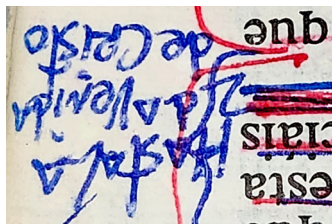 esta
ciáis
que
Hasta la
2da Venida
de Cristo